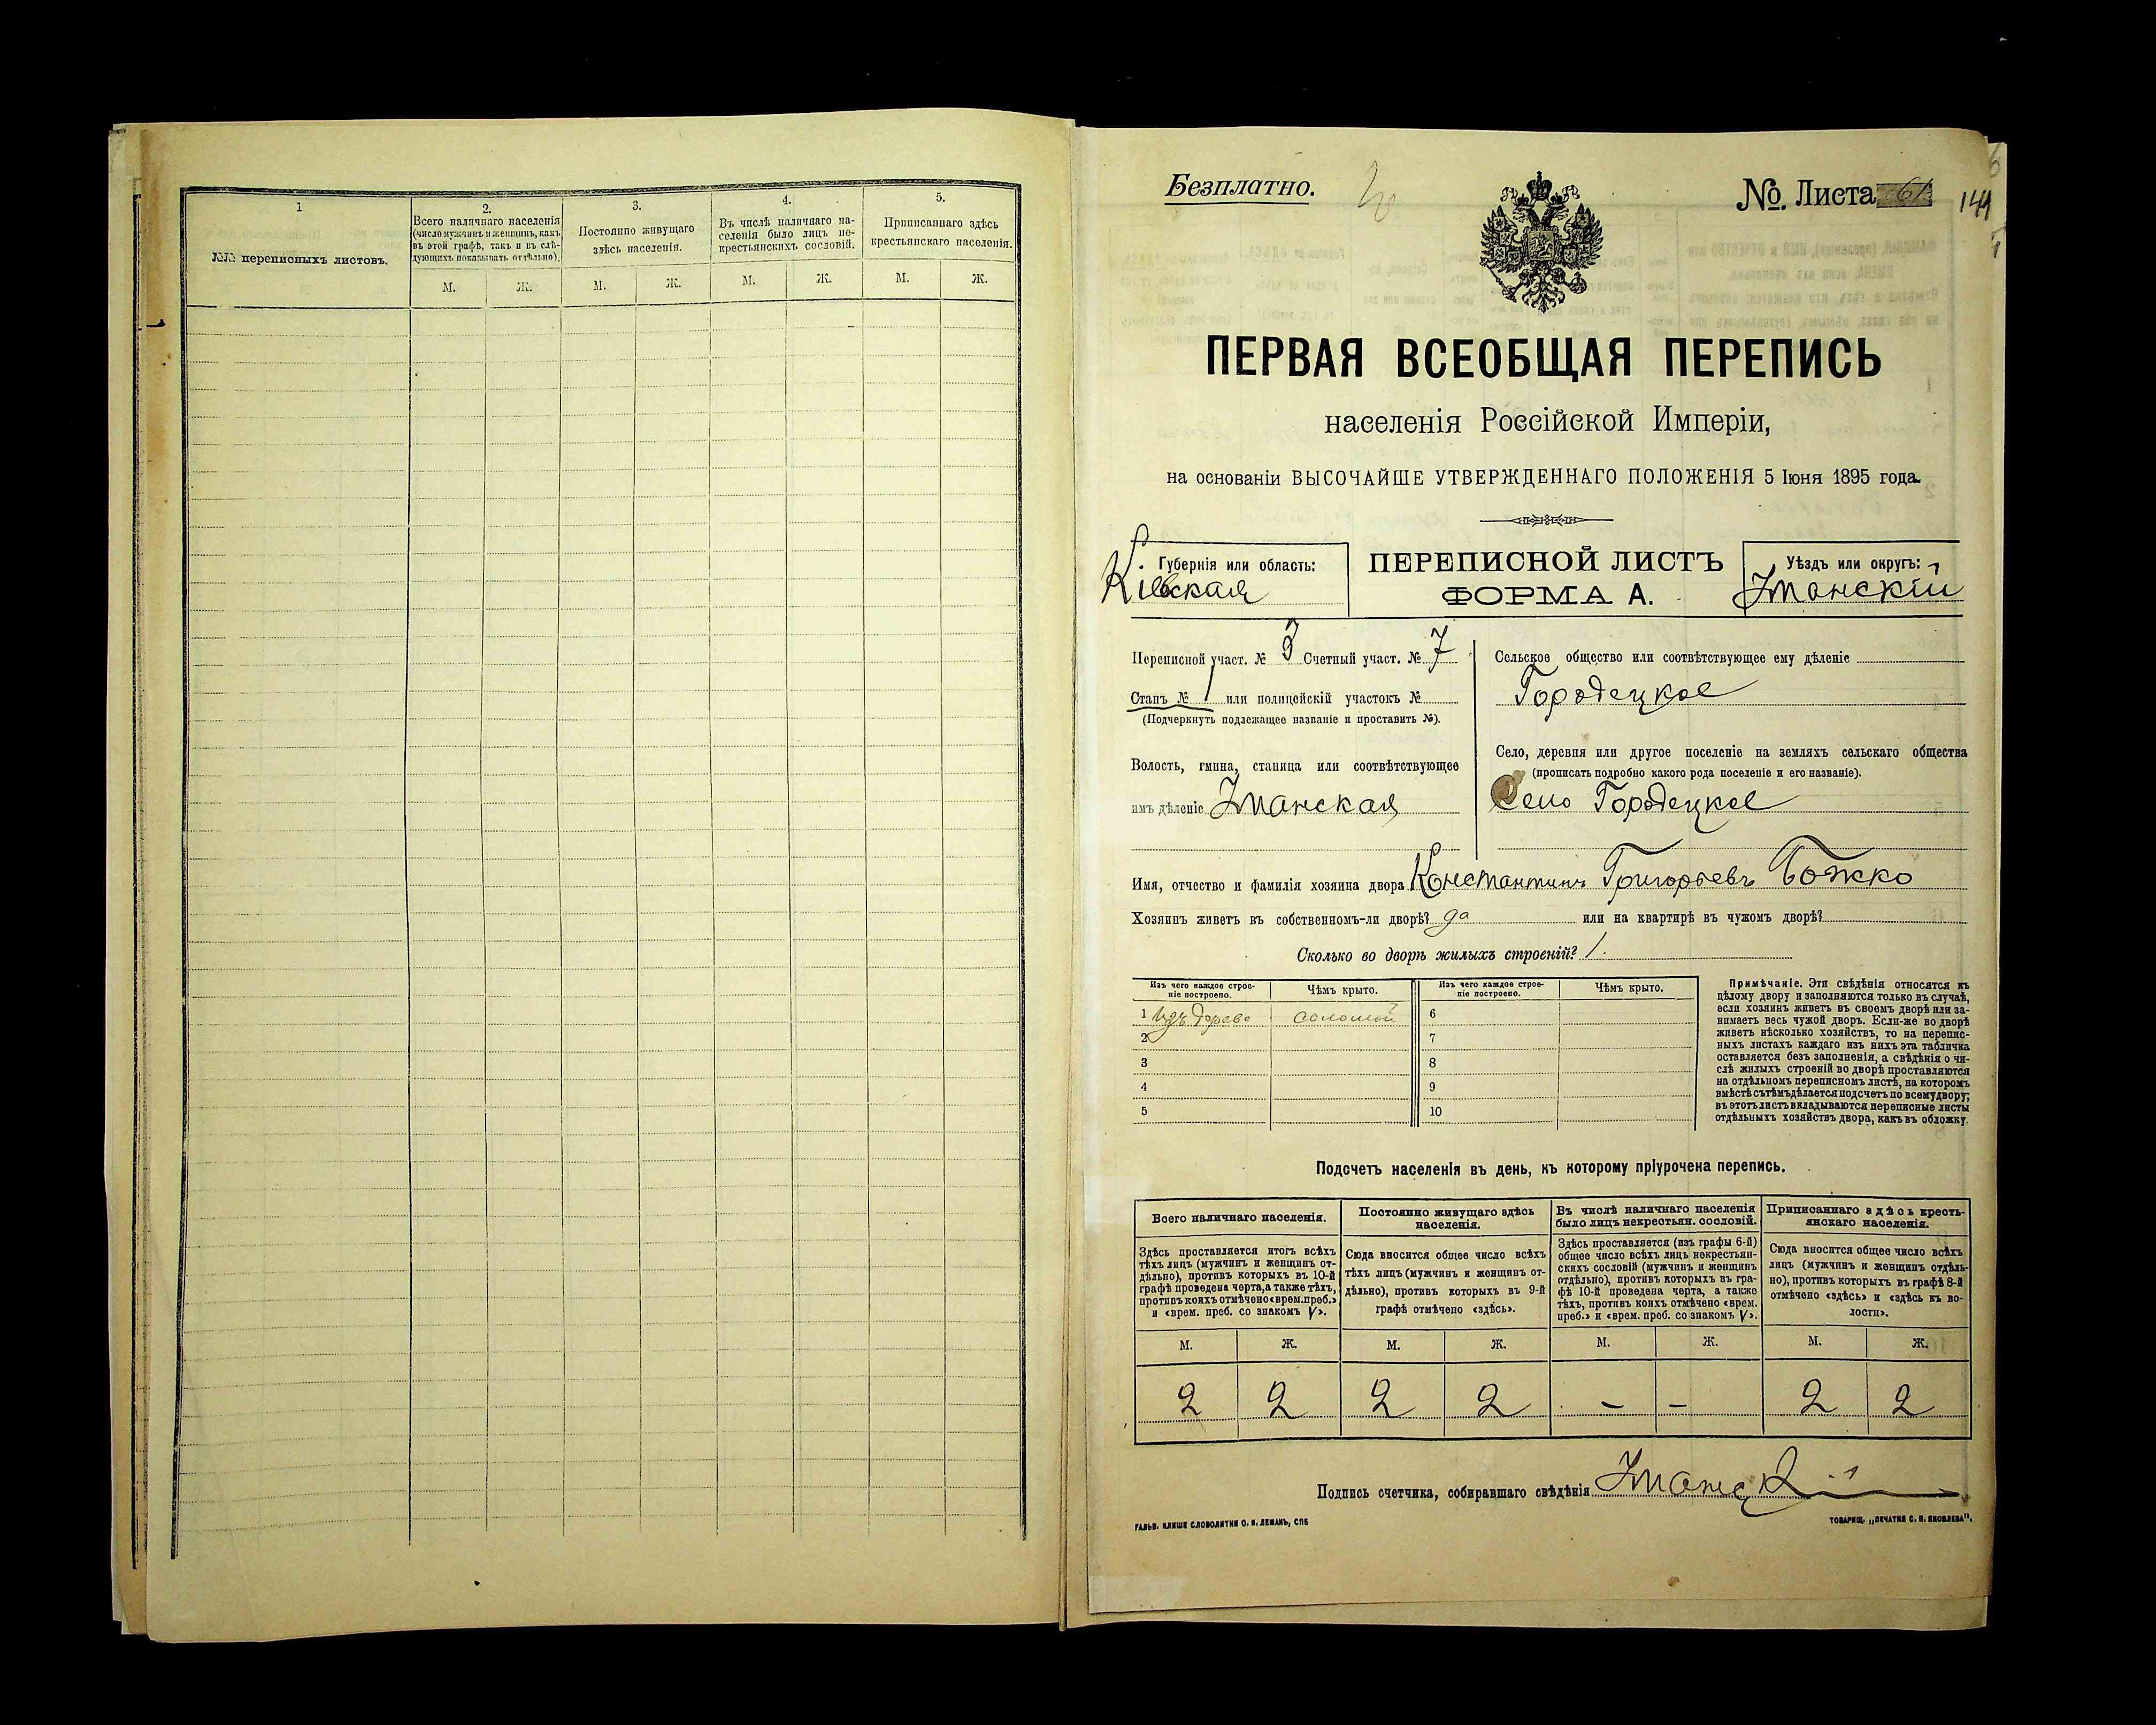 1
№№ переписныхъ листовъ.
2.
Всего наличнаго населенія
(число мужчинъ и женщинъ, какъ
въ этой графѣ, такъ и въ слѣ-
дующихъ показывать отдѣльно).
М.
Ж.
3.
Постоянно живущаго
здѣсь населенія.
М.
Ж.
4.
Въ числѣ наличнаго на-
селенія было лицъ не-
крестьянскихъ сословій.
М.
Ж.
5.
Приписаннаго здѣсь
крестьянскаго населенія.
М.
Ж.
Безплатно.
№. Листа 61
ПЕРВАЯ ВСЕОБЩАЯ ПЕРЕПИСЬ
населенія Россійской Имперіи,
на основаніи ВЫСОЧАЙШЕ УТВЕРЖДЕННАГО ПОЛОЖЕНІЯ 5 Іюня 1895 года.
Губернія или область:
Кіевская
ПЕРЕПИСНОЙ ЛИСТЪ
ФОРМА А.
Уѣздъ или округъ:
Уманскій
Переписной участ. № 3 Счетный участ. № 7
Станъ № 1 или полицейскій участокъ №
(Подчеркнуть подлежащее названіе и проставить №).
Волость, гмина, станица или соотвѣтствующее
имъ дѣленіе Уманская
Сельское общество или соотвѣтствующее ему дѣленіе
Городецкое
Село, деревня или другое поселеніе на земляхъ сельскаго общества
(прописать подробно какого рода поселеніе и его названіе).
Село Городецкое
Имя, отчество и фамилія хозяина двора Константинъ Григорьевъ Божко
Хозяинъ живетъ въ собственномъ-ли дворѣ? да или на квартирѣ въ чужомъ дворѣ?
Сколько во дворѣ жилыхъ строеній? 1.
Изъ чего каждое строе-
ніе построено.
Чѣмъ крыто.
Изъ чего каждое строе-
ніе построено.
Чѣмъ крыто.
1 Изъ дерева соломой 6
2 7
3 8
4 9
5 10
Примѣчаніе. Эти свѣдѣнія относятся къ
цѣлому двору и заполняются только въ случаѣ,
если хозяинъ живетъ въ своемъ дворѣ или за-
нимаетъ весь чужой дворъ. Если-же во дворѣ
живетъ нѣсколько хозяйствъ, то на перепис-
ныхъ листахъ каждаго изъ нихъ эта табличка
оставляется безъ заполненія, а свѣдѣнія о чи-
слѣ жилыхъ строеній во дворѣ проставляются
на отдѣльномъ переписномъ листѣ, на которомъ
вмѣстѣ съ тѣмъ дѣлается подсчетъ по всему двору;
въ этотъ листъ вкладываются переписные листы
отдѣльныхъ хозяйствъ двора, какъ въ обложку.
Подсчетъ населенія въ день, къ которому пріурочена перепись.
Всего наличнаго населенія.
Здѣсь проставляется итогъ всѣхъ
тѣхъ лицъ (мужчинъ и женщинъ от-
дѣльно), противъ которыхъ въ 10-й
графѣ проведена черта, а также тѣхъ,
противъ коихъ отмѣчено «врем. преб.»
и «врем. преб. со знакомъ V».
Постоянно живущаго здѣсь
населенія.
Сюда вносится общее число всѣхъ
тѣхъ лицъ (мужчинъ и женщинъ от-
дѣльно), противъ которыхъ въ 9-й
графѣ отмѣчено «здѣсь».
Въ числѣ наличнаго населенія
было лицъ некрестьян. сословій.
Здѣсь проставляется (изъ графы 6-й)
общее число всѣхъ лицъ некрестьян-
скихъ сословій (мужчинъ и женщинъ
отдѣльно), противъ которыхъ въ гра-
фѣ 10-й проведена черта, а также
тѣхъ, противъ коихъ отмѣчено «врем.
преб.» и «врем. преб. со знакомъ V».
Приписаннаго здѣсь кресть-
янскаго населенія.
Сюда вносится общее число всѣхъ
лицъ (мужчинъ и женщинъ отдѣль-
но), противъ которыхъ въ графѣ 8-й
отмѣчено «здѣсь» и «здѣсь къ во-
лости».
М. Ж. М. Ж. М. Ж. М. Ж.
2 2 2 2 – – 2 2
Подпись счетчика, собиравшаго свѣдѣнія
ГАЛЬВ. КЛИШЕ СЛОВОЛИТНИ О. И. ЛЕМАНЪ, СПБ
ТОВАРИЩ. „ПЕЧАТНЯ С. П. ЯКОВЛЕВА".